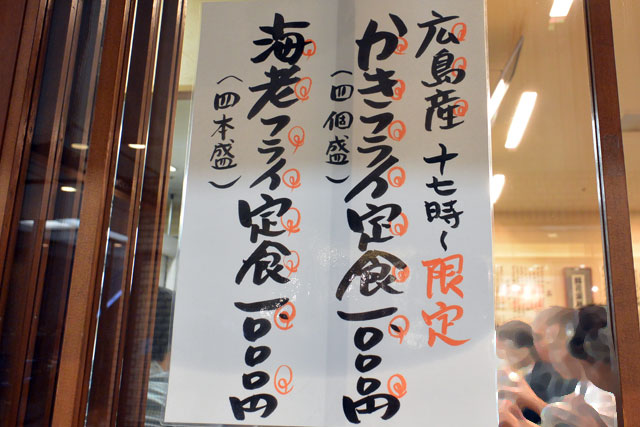 広島産 十七時~限定
かきフライ定食 一、〇〇〇円
(四個盛)
海老フライ定食 一、〇〇〇円
(四本盛)